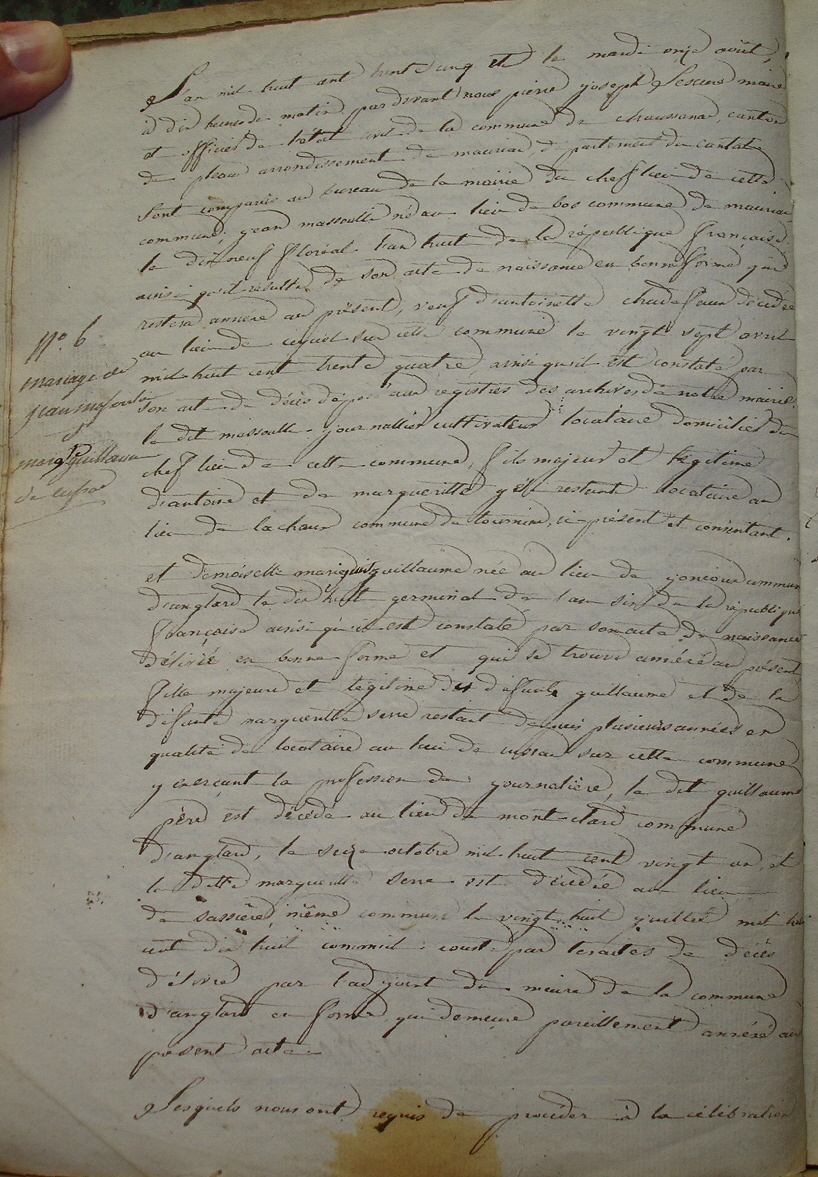 N.° 6
mariage de
jean massoule
et
marg.te guillaume
de cussac
L'an mil huit cent trente cinq et le mardi onze août,
à dix heures de matin pardevant nous pierre joseph Lescure maire
et officier de l'état civil de la commune de chaussenac, canton
de pleau arrondissement de mauriac, département du cantal
sont comparus au bureau de la mairie du chef lieu de cette
commune, jean massoulle né au lieu de bos commune de mauriac
le dix neuf floréal l'an huit de la république française
ainsi qu'il résulte de son acte de naissance en bonne forme qui
restera annéxé au présent, veuf d'antoinette décédée
au lieu de cussac sur cette commune le vingt sept avril
mil huit cent trente quatre, ainsi qu'il est constaté par
son acte de décès déposé aux registres des archives de notre mairie
le dit massoulle journallier cultivateur locataire domicilié du
chef lieu de cette commune, fils majeur et légitime
d'antoine et de margueritte restant locataire au
lieu de lachaux commune de tourniac, ci présent et consentant.
et demoiselle guillaume née au lieu de commune
d'anglard le dix huit germinal de l'an six de la république
française ainsi qu'il est constaté par son acte de naissance
délivré en bonne forme et qui se trouve annéxé au présent
fille majeure et légitime de défunt guillaume et de la
défunte margueritte serre restant depuis plusieurs années en
qualité de locataire au lieu de cussac sur cette commune
y exerçant la profession de journalière, le dit guillaume
père est décédé au lieu de montclard commune
d'anglard, le seize octobre mil huit cent vingt un, et
la ditte margueritte serre est décédée au lieu
de sassière, même commune le vingt huit juillet mil huit
cent dix huit comme il conste par les actes de décès
délivré par l'adjoint du maire de la commune
d'anglard en forme, qui demeure pareillement annéxé au
présent acte
Lesquels nous ont requis de procéder à la célébration